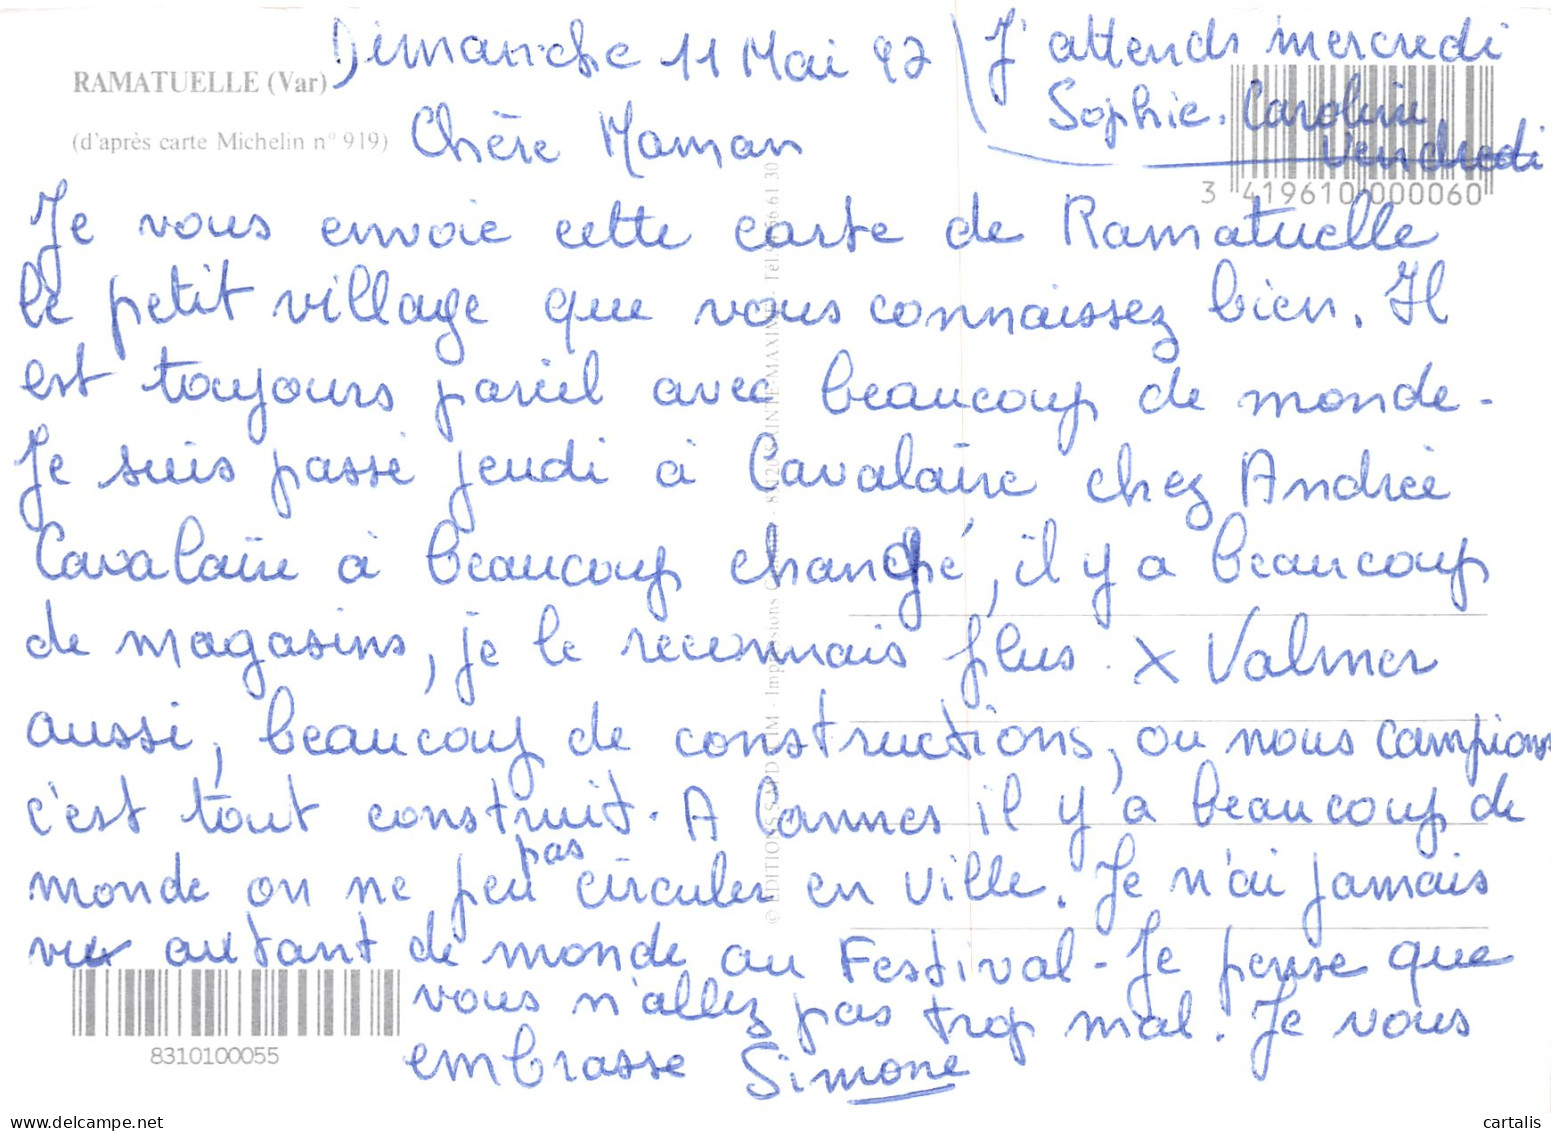 RAMATUELLE (Var)
(d'après carte Michelin n° 919)
Dimanche 11 Mai 97
J'attends mercredi
Sophie. Caroline
Vendredi
3 419610 000060
Chère Maman
Je vous envoie cette carte de Ramatuelle
le petit village que vous connaissez bien. Il
est toujours pariel avec beaucoup de monde.
Je suis passé jeudi à Cavalaire chez Andrée
Cavalaire à beaucoup changé, il y a beaucoup
de magasins, je le reconnais plus. X Valmer
aussi, beaucoup de constructions, ou nous campions
c'est tout construit. A Cannes il y a beaucoup de
monde on ne peu pas circuler en ville. Je n'ai jamais
vu autant de monde au Festival - Je pense que
vous n'allez pas trop mal. Je vous
embrasse Simone
8310100055
© EDITIONS - Impressions - SAINTE-MAXIME - Tél.
cartalis